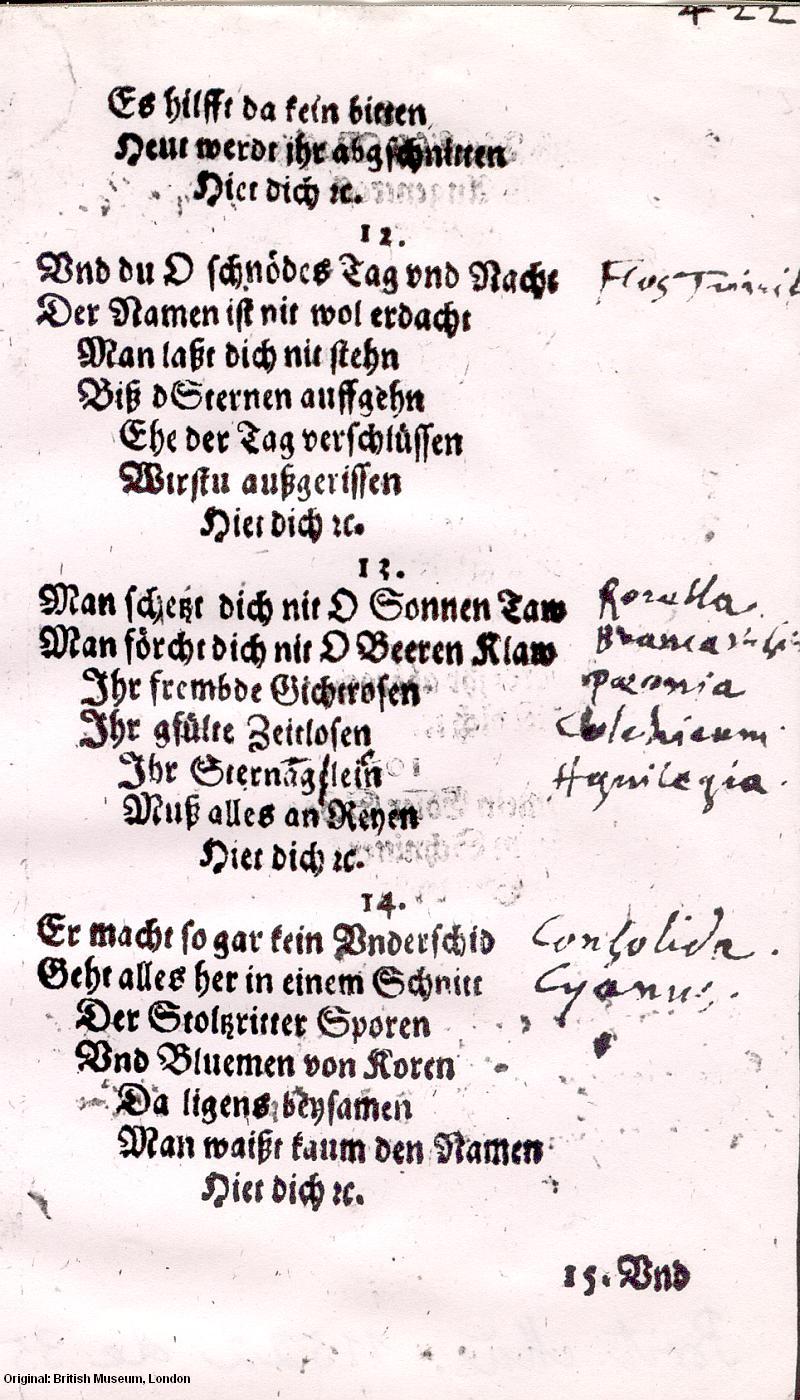 422
Es hilfft da kein bitten
Heut werdt ihr abgschnitten
Hiet dich ꝛc.
12.
Vnd du O schnödes Tag vnd Nacht Flos
Der Namen ist nit wol erdacht
Man laßt dich nit stehn
Biß dSternen auffgehn
Ehe der Tag verschlüssen
Wirstu außgerissen
Hiet dich ꝛc.
13.
Man schetzt dich nit O Sonnen Taw Rorella
Man förcht dich nit O Beeren Klaw Branca
Ihr frembde Gichtrosen pæonia
Ihr gfülte Zeitlosen Colchicum
Ihr Sternägelein Aquilegia.
Muß alles an Reyen
Hiet dich ꝛc.
14.
Er macht so gar kein Vnderschid Consolida.
Geht alles her in einem Schnitt Cyanus.
Der Stoltzritter Sporen
Vnd Bluemen von Koren
Da ligens beysamen
Man waißt kaum den Namen
Hiet dich ꝛc.
15. Vnd
Original: British Museum, London